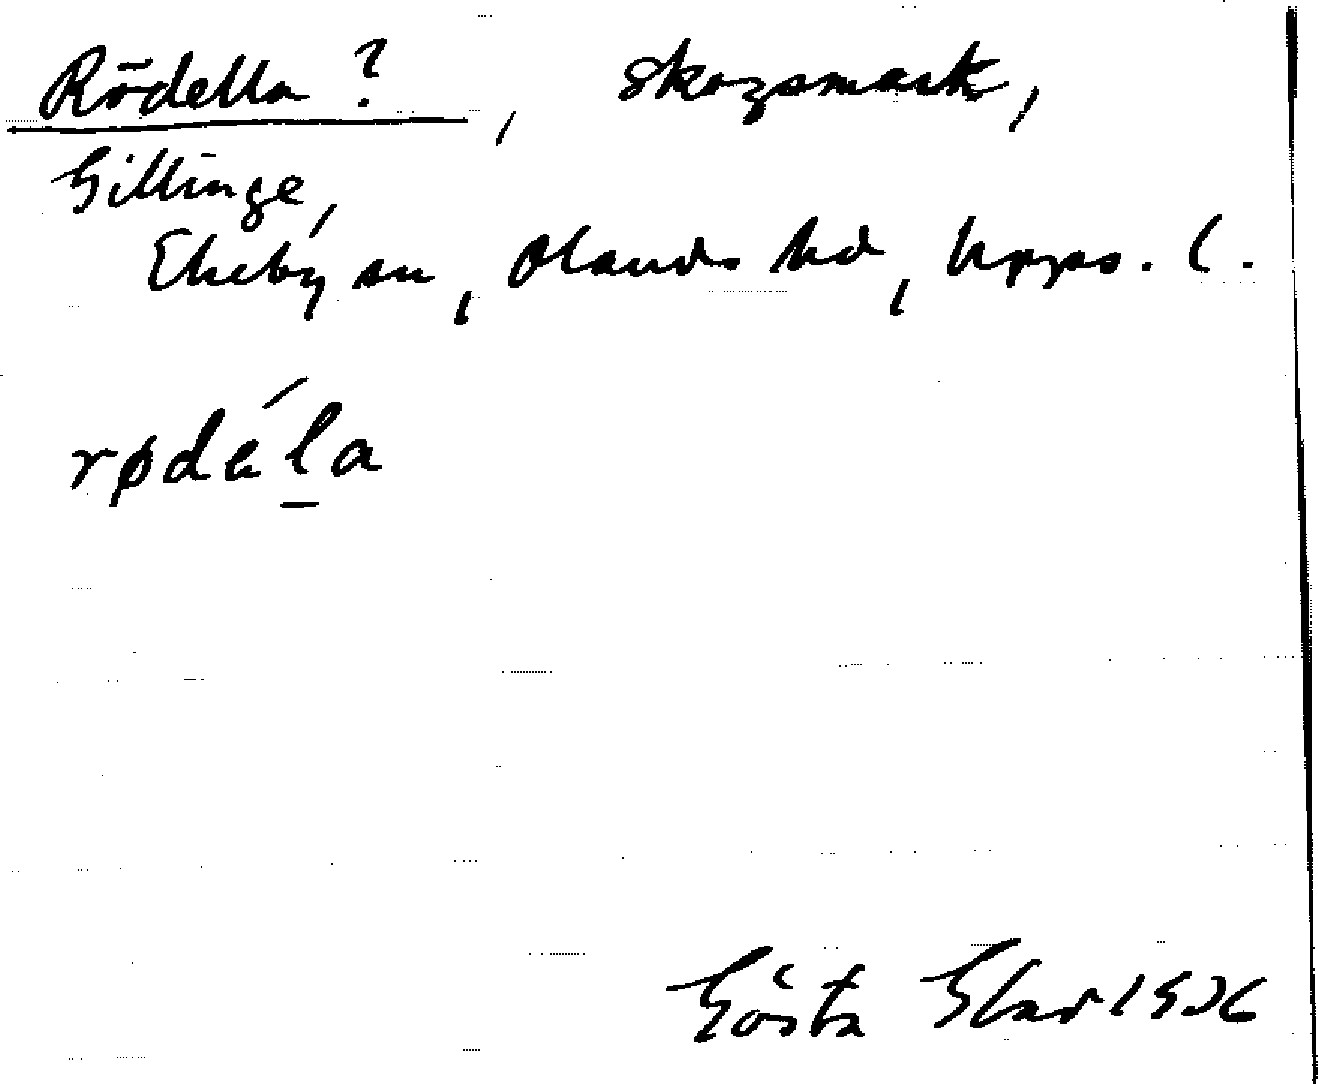 Rödella ?, skogsmark,
Gillinge,
Ekeby sn, Olands hd, Upps. l.
rødéla
Gösta